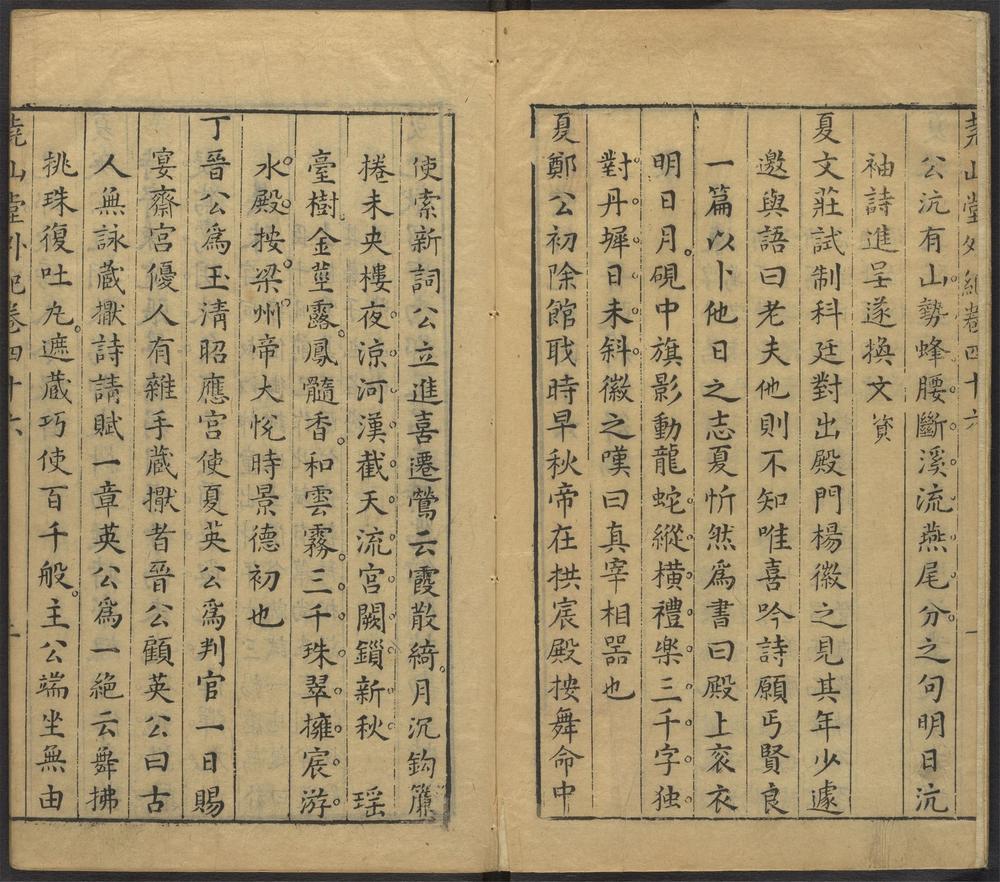 堯山堂外紀卷四十六 一
公沆有山勢蜂腰斷溪流燕尾分之句明日沆
袖詩進呈遂換文資
夏文莊試制科廷對出殿門楊徽之見其年少遽
邀與語曰老夫他則不知唯喜吟詩願丐賢良
一篇以卜他日之志夏忻然爲書曰殿上衮衣
明日月硯中旗影動龍蛇縱橫禮樂三千字独
對丹墀日未斜徽之嘆曰真宰相器也
夏鄭公初除館職時早秋帝在拱宸殿按舞命中
使索新詞公立進喜遷鶯云霞散綺月沉鈎簾
捲未央樓夜涼河漢截天流宮闕鎖新秋 瑶
臺樹金莖露鳳髓香和雲霧三千珠翠擁宸游
水殿按梁州帝大悅時景德初也
丁晉公爲玉清昭應宮使夏英公爲判官一日賜
宴齋宮優人有雜手藏擫者晉公顧英公曰古
人無詠藏擫詩請賦一章英公爲一絕云舞拂
挑珠復吐丸遮藏巧使百千般主公端坐無由
堯山堂外紀卷四十六